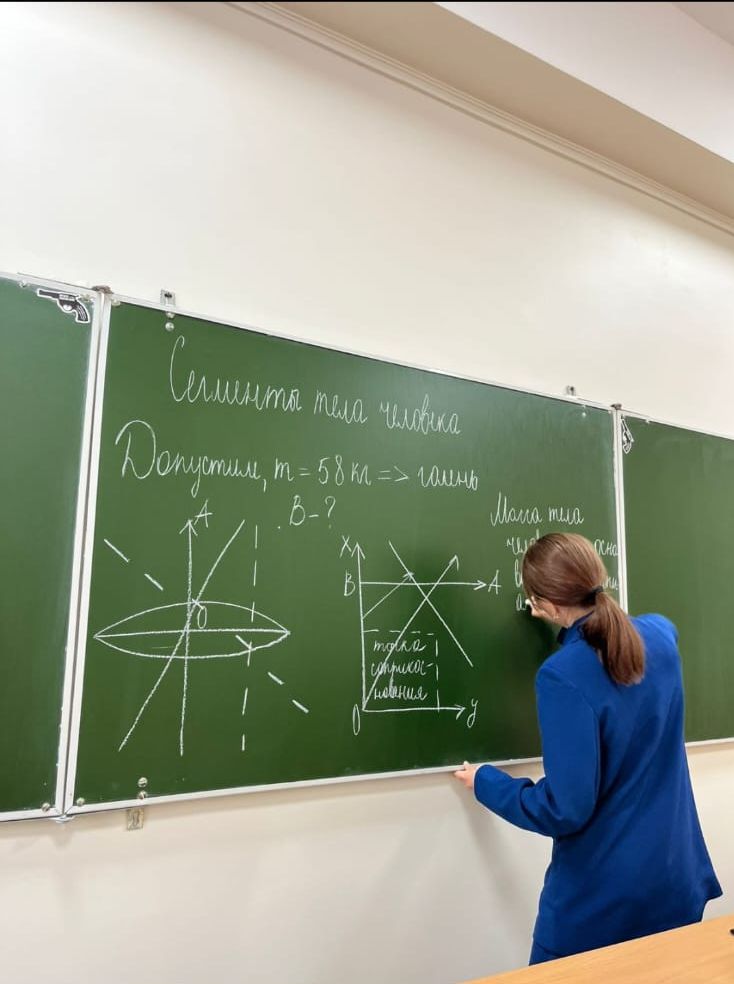 Сегменты тела человека
Допустим, m = 58 кг => голень
B - ?
A
O
X
B
A
точка
соприкос-
новения
O
y
Масса тела